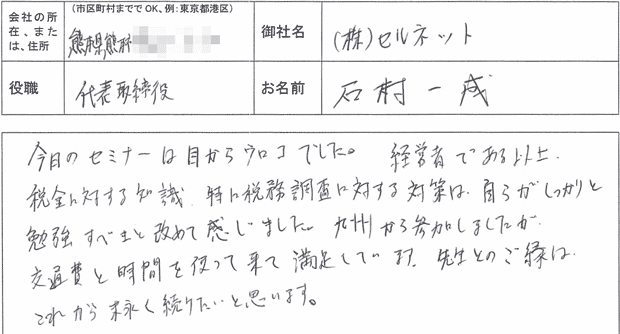 会社の所在、または、住所
(市区町村まででOK、例:東京都港区)
熊本県熊本
御社名
(株)セルネット
役職
代表取締役
お名前
石村一成
今日のセミナーは目からウロコでした。 経営者である以上、
税金に対する知識、特に税務調査に対する対策は、自らがしっかりと
勉強すべきと改めて感じました。九州から参加しましたが、
交通費と時間を使って来て満足しています。先生とのご縁は、
これから末永く続けたいと思います。